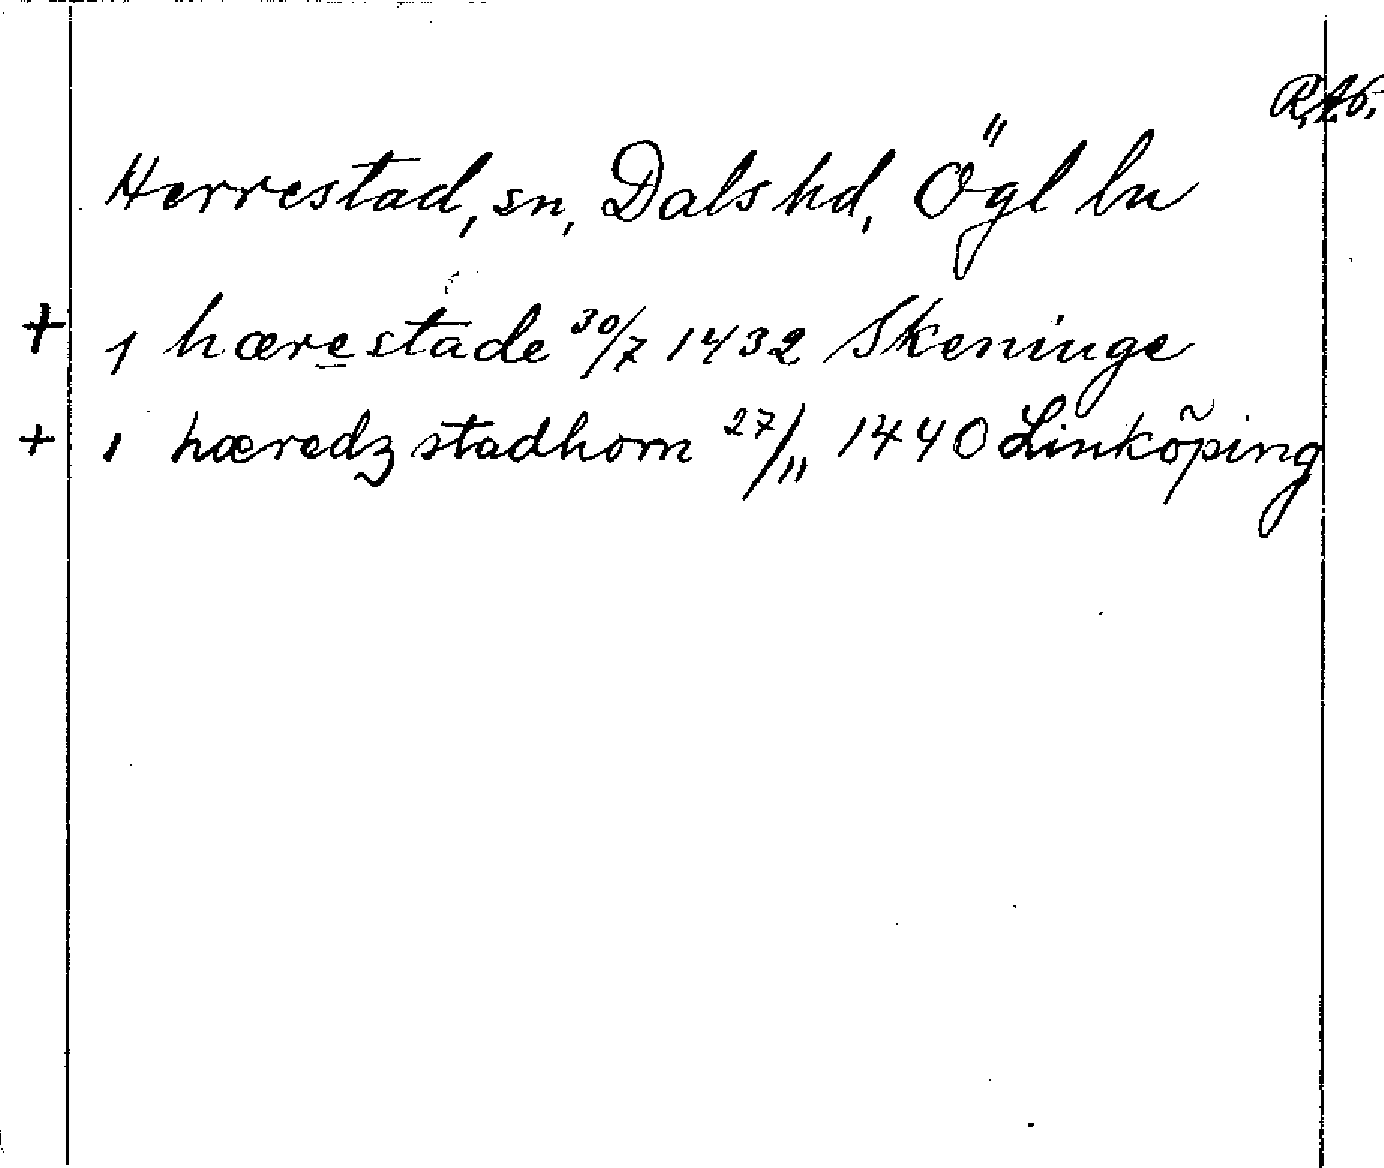 R.A.6.
Herrestad, sn, Dals hd, Ögl ln
+ 1 hærestade 30/7 1432 Skeninge
+ 1 hæredz stadhom 27/11 1440 Linköping